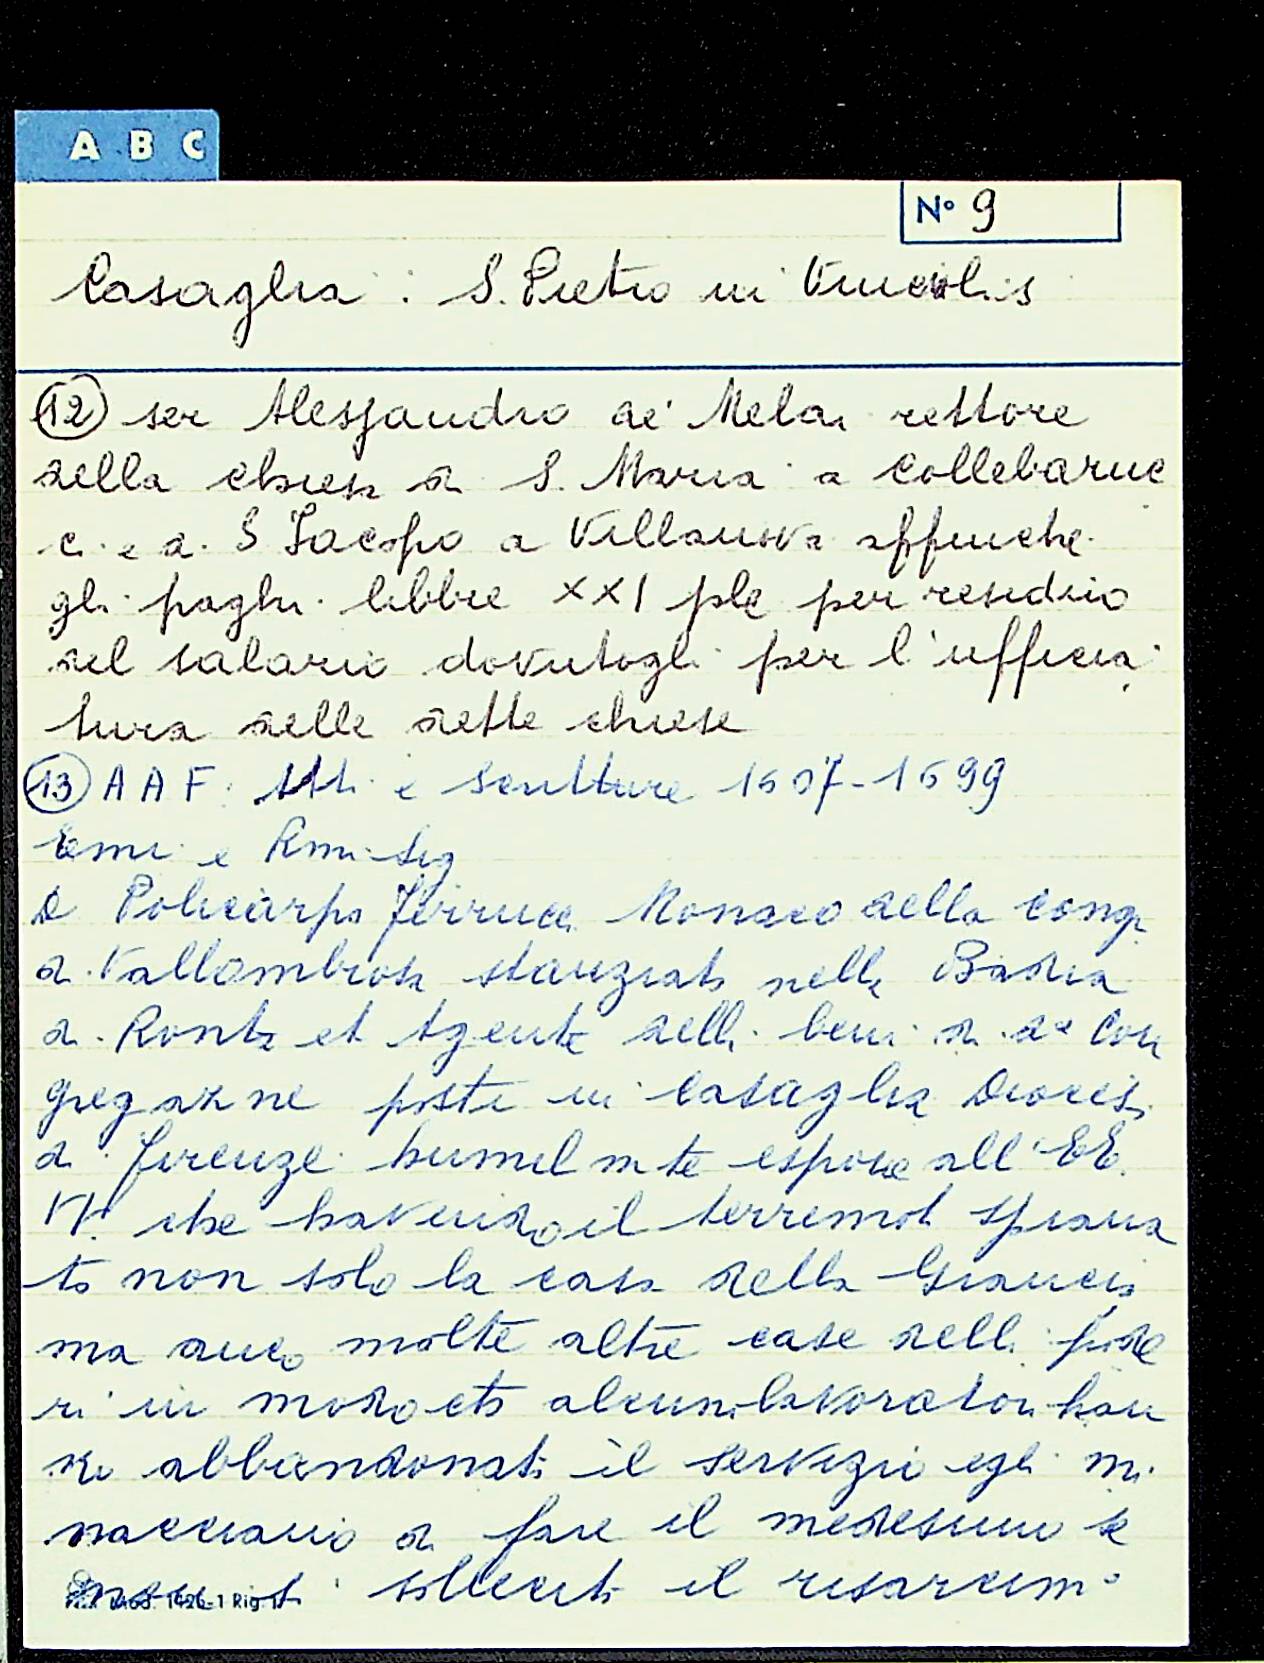 A B C
N° 9
Casaglia : S. Pietro in Vinculis
12 ser Alessandro de' Melai rettore
della chiesa di S. Maria a Collebaruc
ci e di S Jacopo a Villanova affinche
gli paghi libbre XXI ple per residuo
del salario dovutogli per l'ufficia
tura delle dette chiese
13 A A F: Atti e Scritture 1607-1699
Emi e Rmi Sig
D Policarpo Ferrucci Monaco della cong
di Vallombrosa stanziato nella Badia
di Ronta et Agente delli beni di da Con
gregazne poste in Casaglia Diocesi
di Firenze humilmte espone all'EE.
VV. che havendo il terremoto spiana
to non solo la casa della Grancia
ma anco molte altre case delli pode
ri in modo che alcuni lavoratori han
no abbandonato il servizio e gli mi
nacciano di fare il medesimo se
non si solleciti il risarcimo
Mod. 1426-1 Rig.